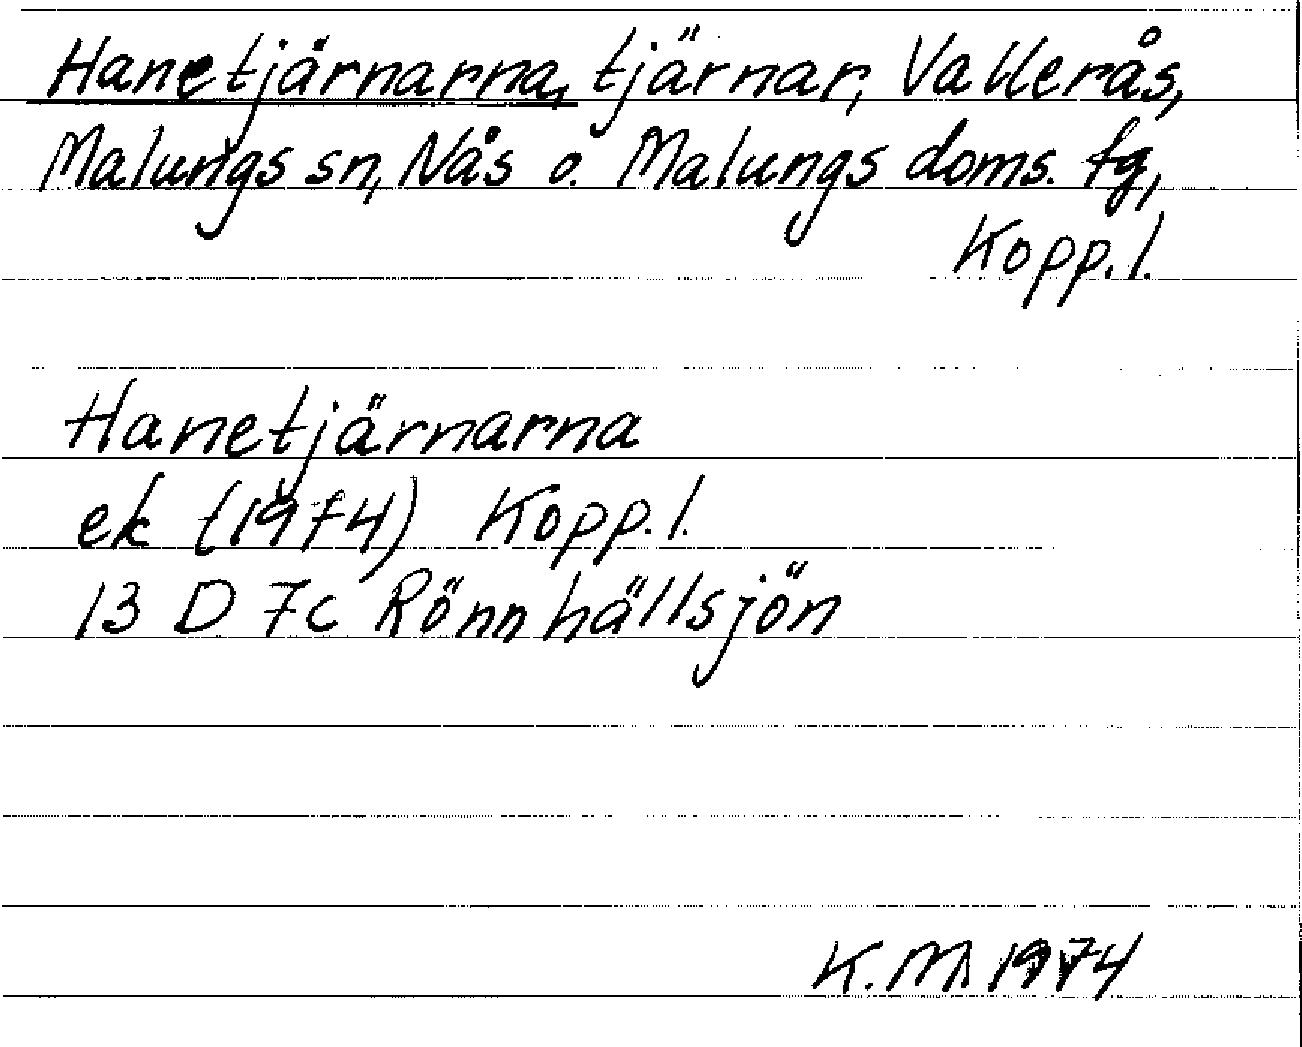 Hanetjärnarna, tjärnar, Vallerås,
Malungs sn, Nås o. Malungs doms. tg,
Kopp. l.
Hanetjärnarna
ek (1974) Kopp. l.
13 D 7c Rönnhällsjön
K. M. 1974